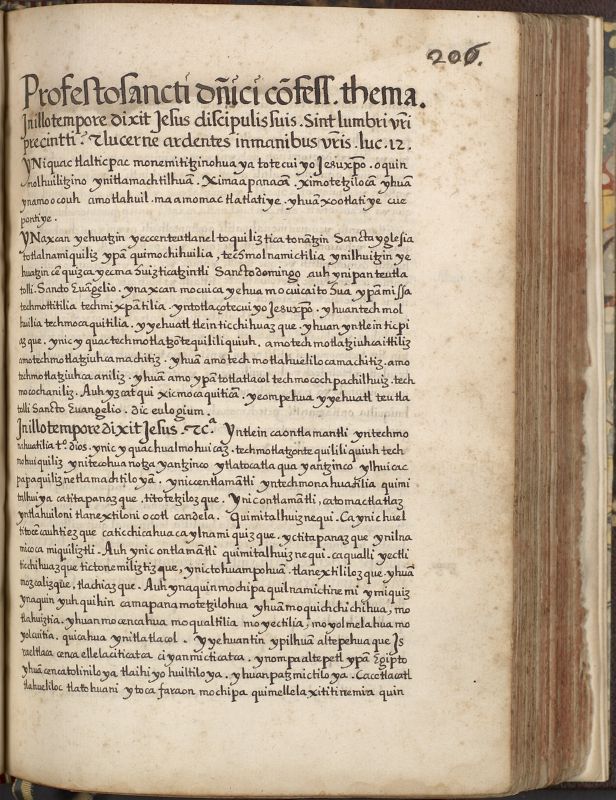 206.
Profesto sancti dñici cõfess. thema.
In illo tempore dixit Jesus discipulis suis. Sint lumbri vr̃i
precintti: & lucerne ardentes in manibus vr̃is. luc. 12.
YNiquac tlalticpac monemititzinohua ya totecuiyo Jesuxpõ. oquin
molhuilitzino ynitlamachtilhuã. Ximaapanacã. ximotetzilocã yhuã
ynamo ocouh amotlahuil. ma amomac tlatlatiye. yhuã xootlatiye cue
pontiye.
YNaxcan yehuatzin yeccenteutlaneltoquiliztica tonãtzin Sancta yglesia
totlalnamiquiliz ypã quimochihuilia, techmolnamictilia ynilhuitzin ye
huatzin cẽquizca yecmahuiztlicatzintli Sancto domingo auh ynipan teutla
tolli. Sancto Euãgelio. ynaxcan mocuica yehua mocuicaito ypã missa
techmottitilia techmixpãtilia. yntotlaçotecuiyo Jesuxpõ. yhuan techmol
huilia techmocaquitilia. yyehuatl tlein ticchihuazque. yhuan yntlein ticpi
azque. ynic yquac techmotlatzõtequililiquiuh. amo techmotlatziuhcaittiliz
amo techmotlatziuhcamachitiz. yhuã amo techmotlahuelilocamachitiz. amo
techmotlatziuhcaaniliz. yhuã amo ypã totlatlacol techmococh pachilhuiz. tech
mocochaniliz. Auh yzcatqui xicmocaquiticã. yeompehua yyehuatl teutla
tolli Sancto Euangelio. dic eulogium.
In illo tempore dixit Jesus. &cª. Yntlein ca ontlamantli yntechmo
nahuatilia tº. dios. ynic yquac hualmohuicaz. techmotlatzontequililiquiuh tech
mohuiquiliz ynitecohuanotza yantzinco ytlatocatlaqua yantzinco ylhuicac
papaquiliznetlamachtiloyã. yniccentlamãtli yntechmonahuatilia quimi
talhuiya catitapanazque. titotetzilozque. Ynicontlamãtli, catomactlatlaz
yntlahuiloni tlanextiloni ocotl candela. Quimitalhuiznequi. Ca ynic huel
titocẽcauhtiezque caticchicahuaca ylnamiquizque. yctitapanazque ynilna
micoca miquiliztli. Auh ynic ontlamãtli quimitalhuiznequi. caqualli yectli
ticchihuazque tictonemiliztizque, ynictohuampohuã. tlanextililozque. yhuã
nozcalizque, tlachiazque. Auh ynaquin mochipa quilnamictinemi ymiquiz
ynaquin yuhquihin camapana motetzilohua yhuã moquichchichihua, mo
tlahuiztia. yhuan mocencahua moqualtilia moyectilia, moyolmelahua mo
yolcuitia. quicahua ynitlatlacol. Yyehuantin ypilhuã altepehuaque Is
raeltlaca cenca ellelaciticatca ciyanmicticatca. ynompa altepetl ypã Egipto
yhuã cencatolinilo ya tlaihiyohuiltiloya. yhuan patzmictiloya. Cacetlacatl
tlahueliloc tlatohuani ytoca faraon mochipa quimellelaxititinemira quin